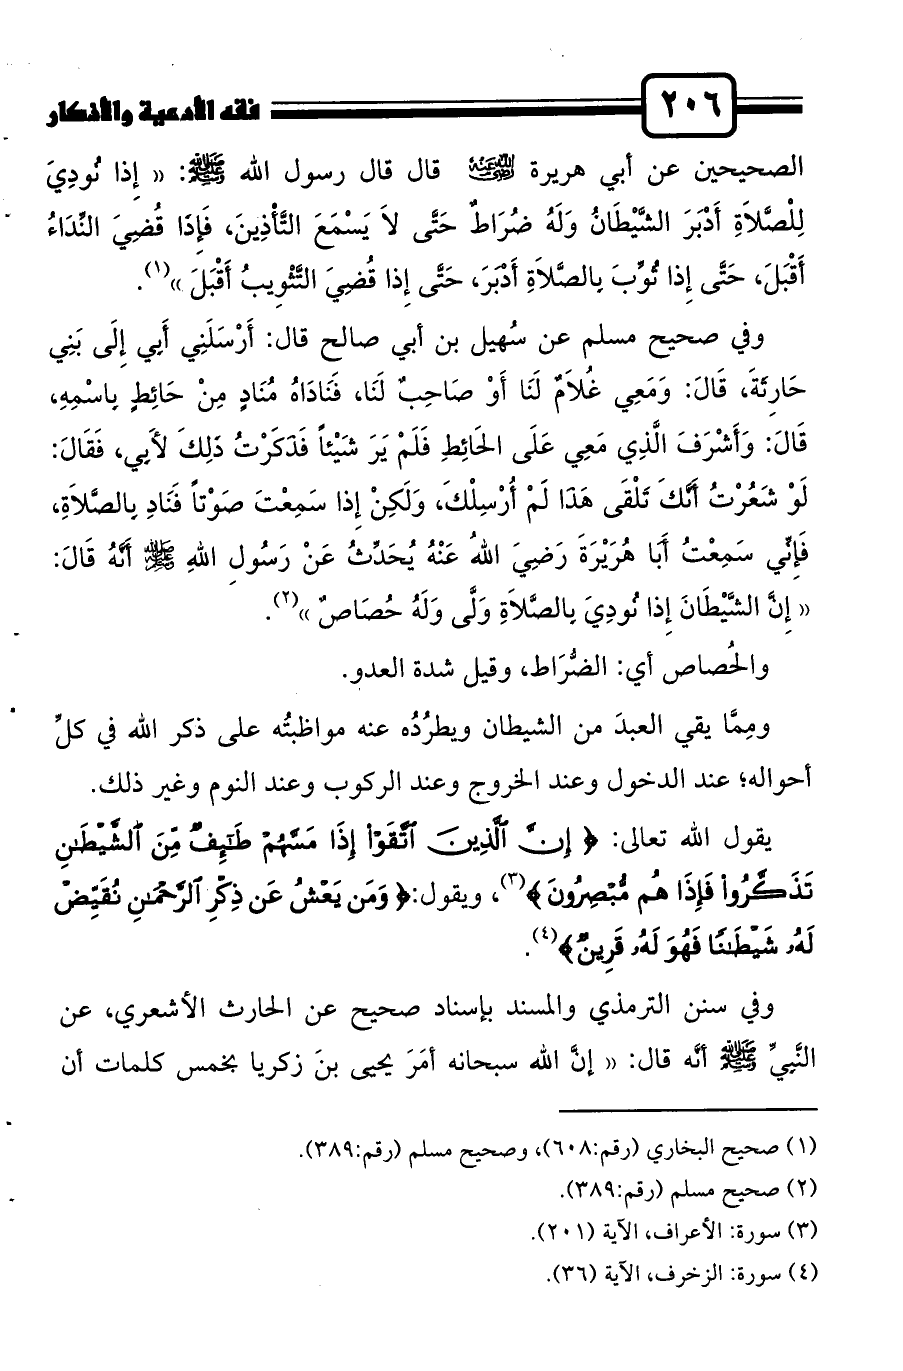 ٢٠٦ فقه الأدعية والأذكار
الصحيحين عن أبي هريرة رضي الله عنه قال قال رسول الله ﷺ: « إِذا نُودِيَ
لِلْصَّلاَةِ أَدْبَرَ الشَّيْطَانُ وَلَهُ ضُرَاطٌ حَتَّى لاَ يَسْمَعَ التَّأْذِينَ، فَإِذَا قُضِيَ النِّدَاءُ
أَقْبَلَ، حَتَّى إِذا ثُوِّبَ بِالصَّلاَةِ أَدْبَرَ، حَتَّى إِذا قُضِيَ التَّثْوِيبُ أَقْبَلَ »(١).
وفي صحيح مسلم عن سُهيل بن أبي صالح قال: أَرْسَلَنِي أَبِي إِلَى بَنِي
حَارِثَةَ، قَالَ: وَمَعِي غُلاَمٌ لَنَا أَوْ صَاحِبٌ لَنَا، فَنَادَاهُ مُنَادٍ مِنْ حَائِطٍ بِاسْمِهِ،
قَالَ: وَأَشْرَفَ الَّذِي مَعِي عَلَى الحَائِطِ فَلَمْ يَرَ شَيْئاً فَذَكَرْتُ ذَلِكَ لأَبِي، فَقَالَ:
لَوْ شَعُرْتُ أَنَّكَ تَلْقَى هَذَا لَمْ أُرْسِلْكَ، وَلَكِنْ إِذا سَمِعْتَ صَوْتاً فَنَادِ بِالصَّلاَةِ،
فَإِنِّي سَمِعْتُ أَبَا هُرَيْرَةَ رَضِيَ اللهُ عَنْهُ يُحَدِّثُ عَنْ رَسُولِ اللهِ ﷺ أَنَّهُ قَالَ:
« إِنَّ الشَّيْطَانَ إِذا نُودِيَ بِالصَّلاَةِ وَلَّى وَلَهُ حُصَاصٌ »(٢).
والحُصاص أي: الضُّرَاط، وقيل شدة العدو.
ومِمَّا يقي العبدَ من الشيطان ويطرُدُه عنه مواظبتُه على ذكر الله في كلِّ
أحواله؛ عند الدخول وعند الخروج وعند الركوب وعند النوم وغير ذلك.
يقول الله تعالى: ﴿ إِنَّ ٱلَّذِينَ ٱتَّقَوْا۟ إِذَا مَسَّهُمْ طَـٰٓئِفٌ مِّنَ ٱلشَّيْطَـٰنِ
تَذَكَّرُوا۟ فَإِذَا هُم مُّبْصِرُونَ ﴾(٣)، ويقول:﴿ وَمَن يَعْشُ عَن ذِكْرِ ٱلرَّحْمَـٰنِ نُقَيِّضْ
لَهُۥ شَيْطَـٰنًا فَهُوَ لَهُۥ قَرِينٌ ﴾(٤).
وفي سنن الترمذي والمسند بإسناد صحيح عن الحارث الأشعري، عن
النَّبِيِّ ﷺ أنَّه قال: « إنَّ الله سبحانه أمَرَ يحيى بنَ زكريا بخمس كلمات أن
(١) صحيح البخاري (رقم:٦٠٨)، وصحيح مسلم (رقم:٣٨٩).
(٢) صحيح مسلم (رقم:٣٨٩).
(٣) سورة: الأعراف، الآية (٢٠١).
(٤) سورة: الزخرف، الآية (٣٦).